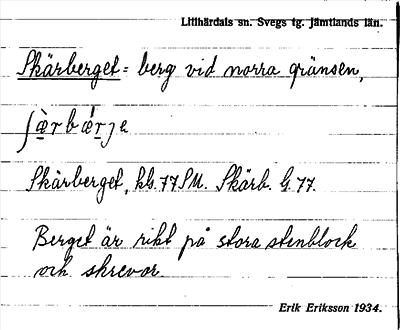 Lillhärdals sn. Svegs tg. Jämtlands län.
Skärberget = berg vid norra gränsen,
Skärberget, kb. 77 SM. Skärb. G. 77.
Berget är rikt på stora stenblock
och skrevor
Erik Eriksson 1934.